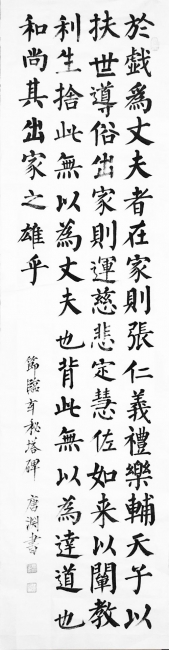 於戲為丈夫者在家則張仁義禮樂輔天子以
扶世導俗出家則運慈悲定慧佐如来以闡教
利生捨此無以為丈夫也背此無以為達道也
和尚其出家之雄乎
節臨玄秘塔碑 唐渊書